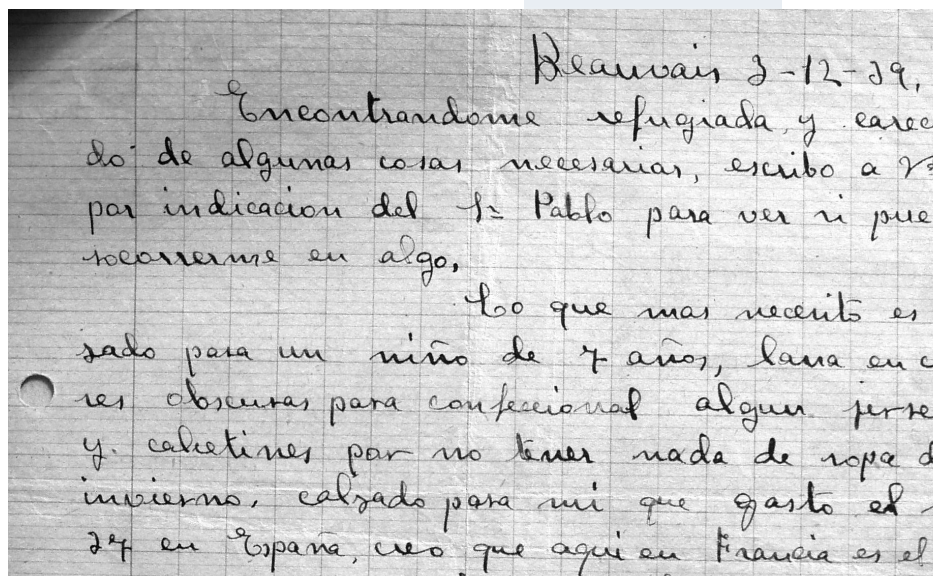 Beauvais 3-12-39,
Encontrandome refugiada, y carec
do de algunas cosas necesarias, escribo a
por indicacion del Sr Pablo para ver si pue
socorrerme en algo,
Lo que mas necesito es
zado para un niño de 7 años, lana en c
res obscuras para confeccional algun jerse
y. calcetines por no tener nada de ropa d
invierno, calzado para mi que gasto el
37 en España, creo que aqui en Francia es el